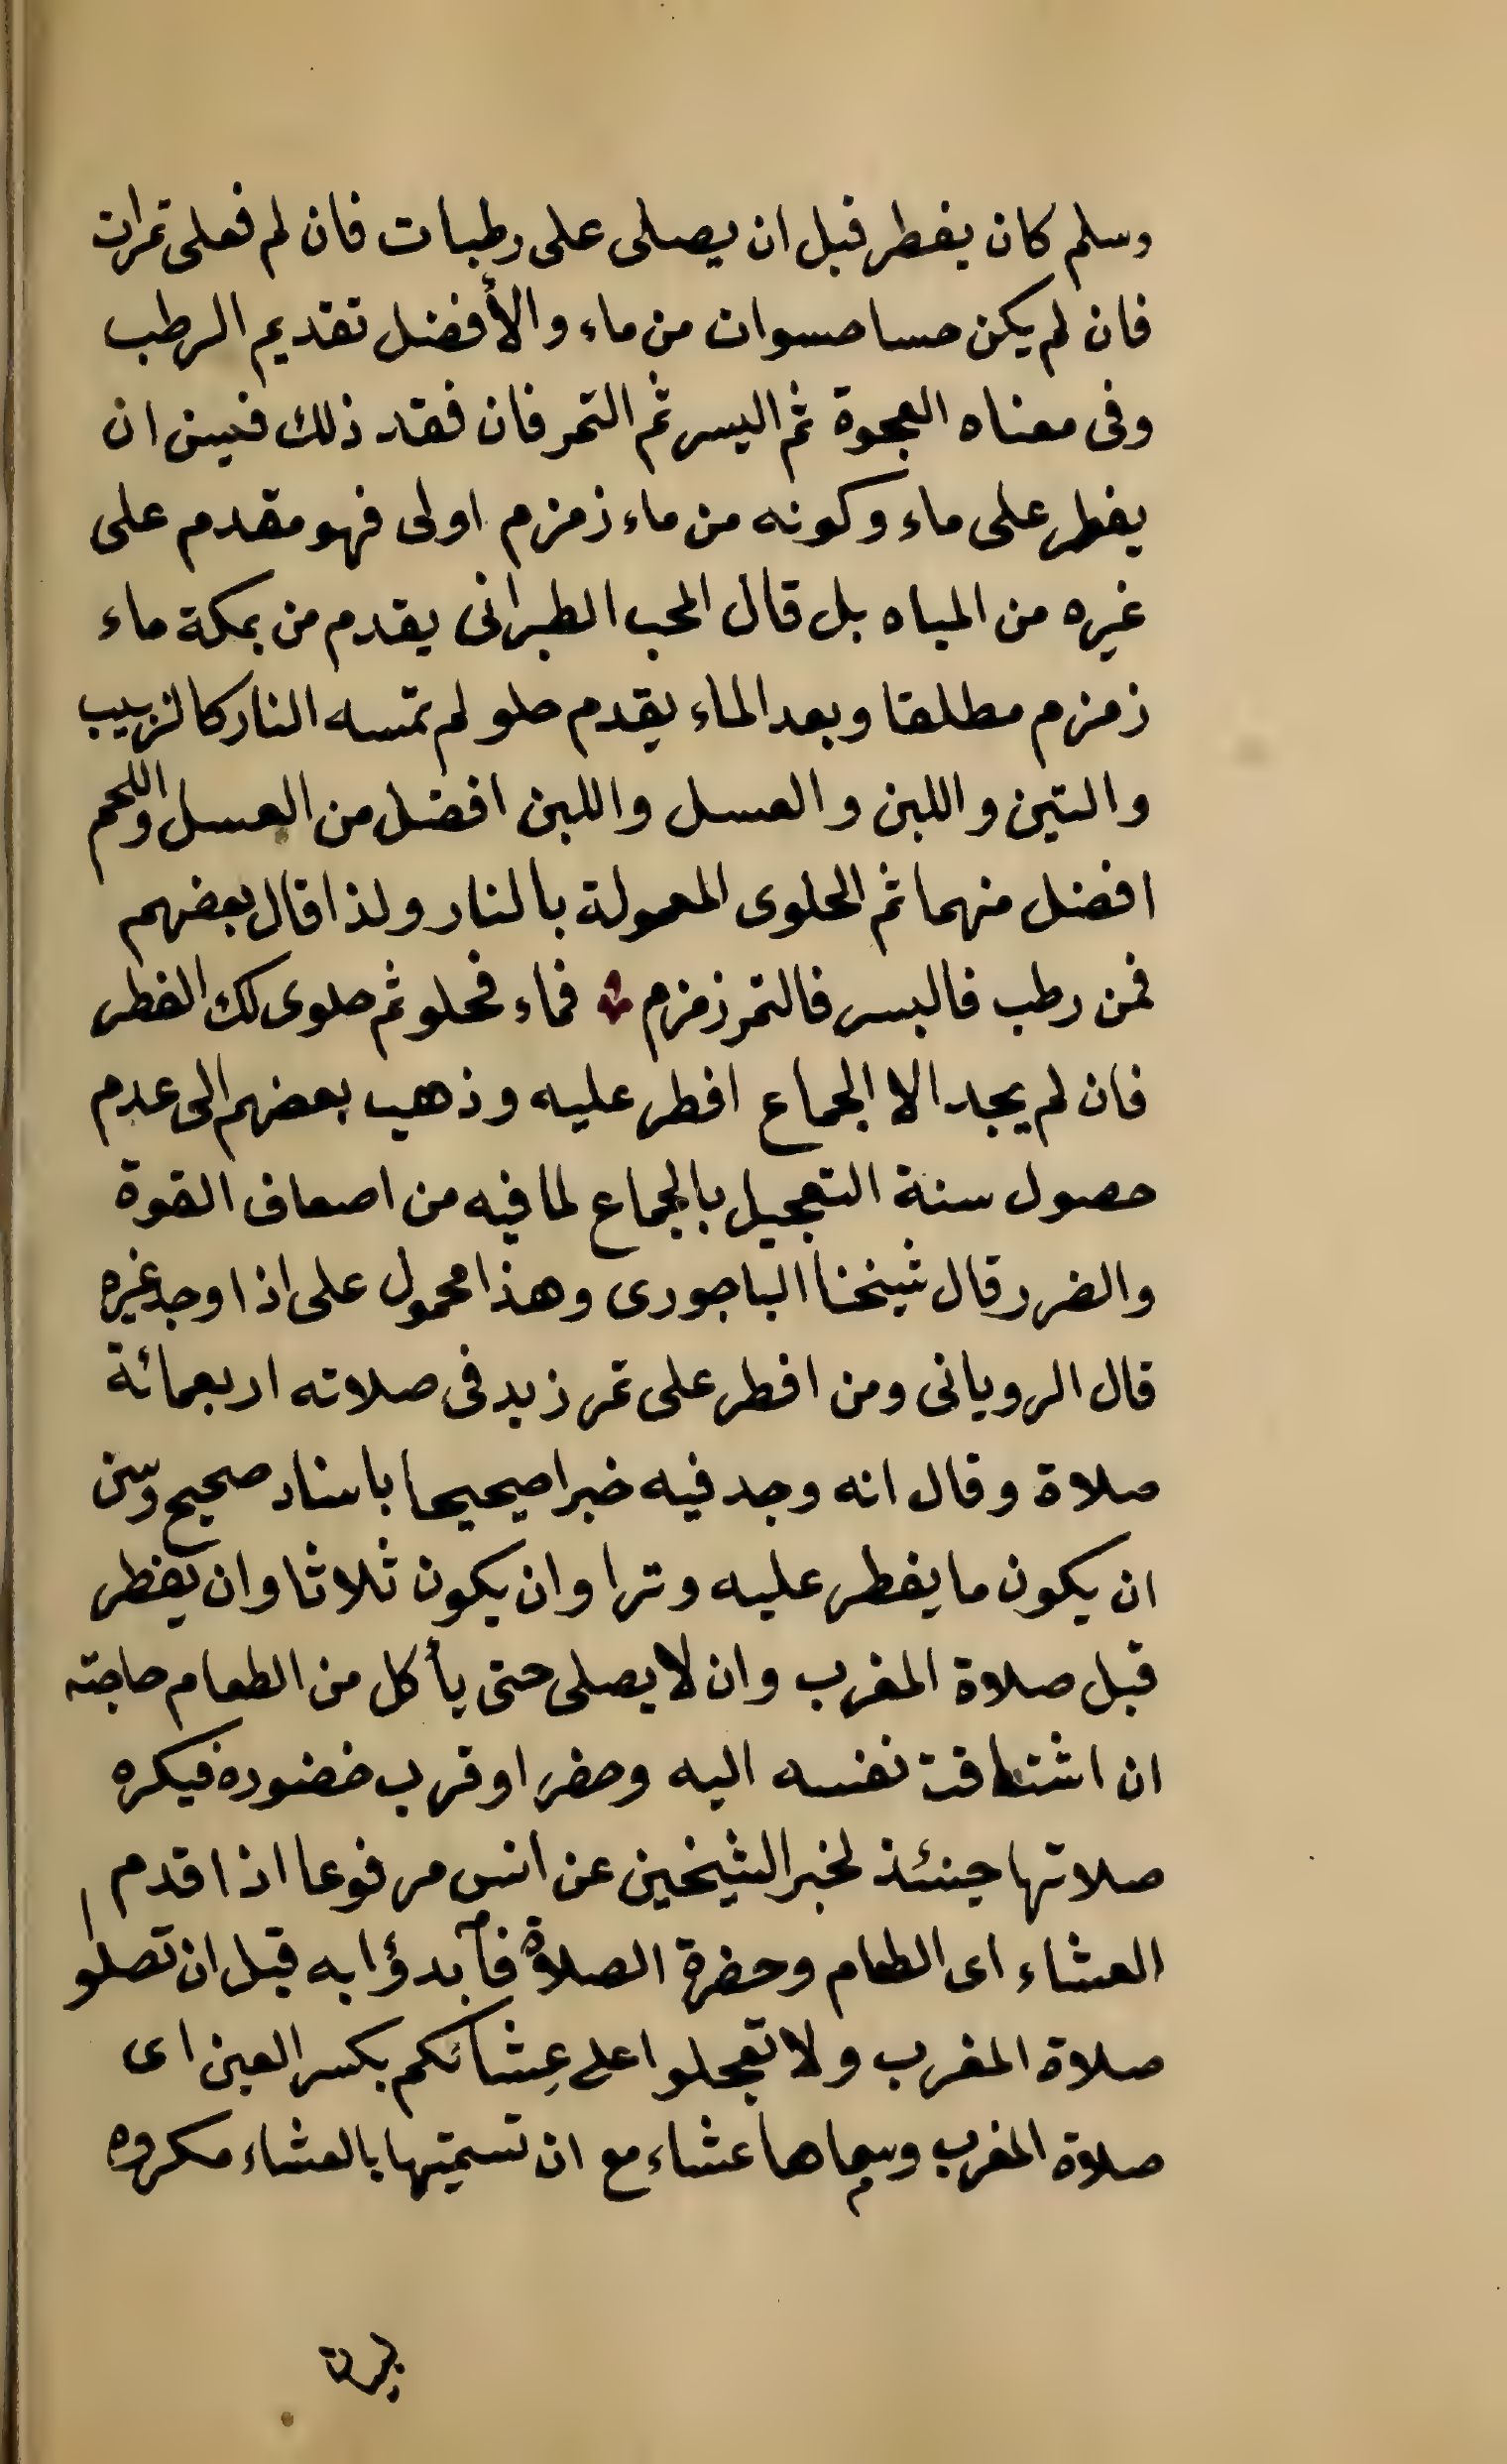 وسلم كان يفطر قبل ان يصلى على رطبات فان لم فعلى تمرات
فان لم يكن حسا حسوات من ماء والأفضل تقديم الرطب
وفى معناه العجوة ثم البسر ثم التمر فان فقد ذلك فيسن ان
يفطر على ماء وكونه من ماء زمزم اولى فهو مقدم على
غيره من المياه بل قال المحب الطبرانى يقدم من بمكة ماء
زمزم مطلقا وبعد الماء يقدم حلو لم تمسه النار كالزبيب
والتين واللبن والعسل واللبن افضل من العسل واللحم
افضل منهما ثم الحلوى المعمولة بالنار ولذا قال بعضهم
فمن رطب فالبسر فالتمر زمزم فماء فحلو ثم حلوى لك الفطر
فان لم يجد الا الجماع افطر عليه وذهب بعضهم الى عدم
حصول سنة التعجيل بالجماع لما فيه من اضعاف القوة
والضرر قال شيخنا الباجورى وهذا محمول على اذا وجد غيره
قال الرويانى ومن افطر على تمر زيد فى صلاته اربعمائة
صلاة وقال انه وجد فيه خبرا صحيحا باسناد صحيح وسن
ان يكون ما يفطر عليه وترا وان يكون ثلاثا وان يفطر
قبل صلاة المغرب وان لا يصلى حتى يأكل من الطعام حاجته
ان اشتاقت نفسه اليه وحضر او قرب حضوره فيكره
صلاتها حينئذ لخبر الشيخين عن انس مرفوعا اذا قدم
العشاء اى الطعام وحضرة الصلاة فآبدؤا به قبل ان تصلوا
صلاة المغرب ولا تعجلوا على عِشائكم بكسر العين اى
صلاة المغرب وسماها عشاء مع ان تسميتها بالعشاء مكروه